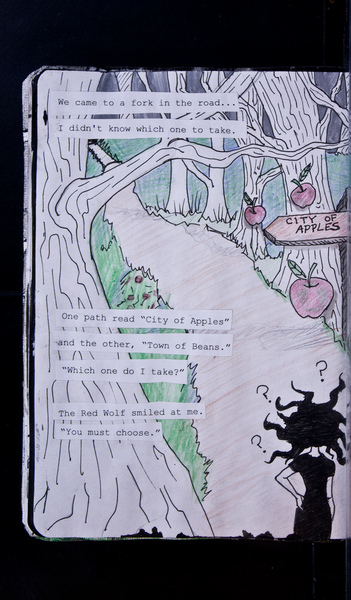 We came to a fork in the road...
I didn't know which one to take.
CITY OF
APPLES
One path read "City of Apples"
and the other, "Town of Beans."
"Which one do I take?"
The Red Wolf smiled at me.
"You must choose."
? 
?
?